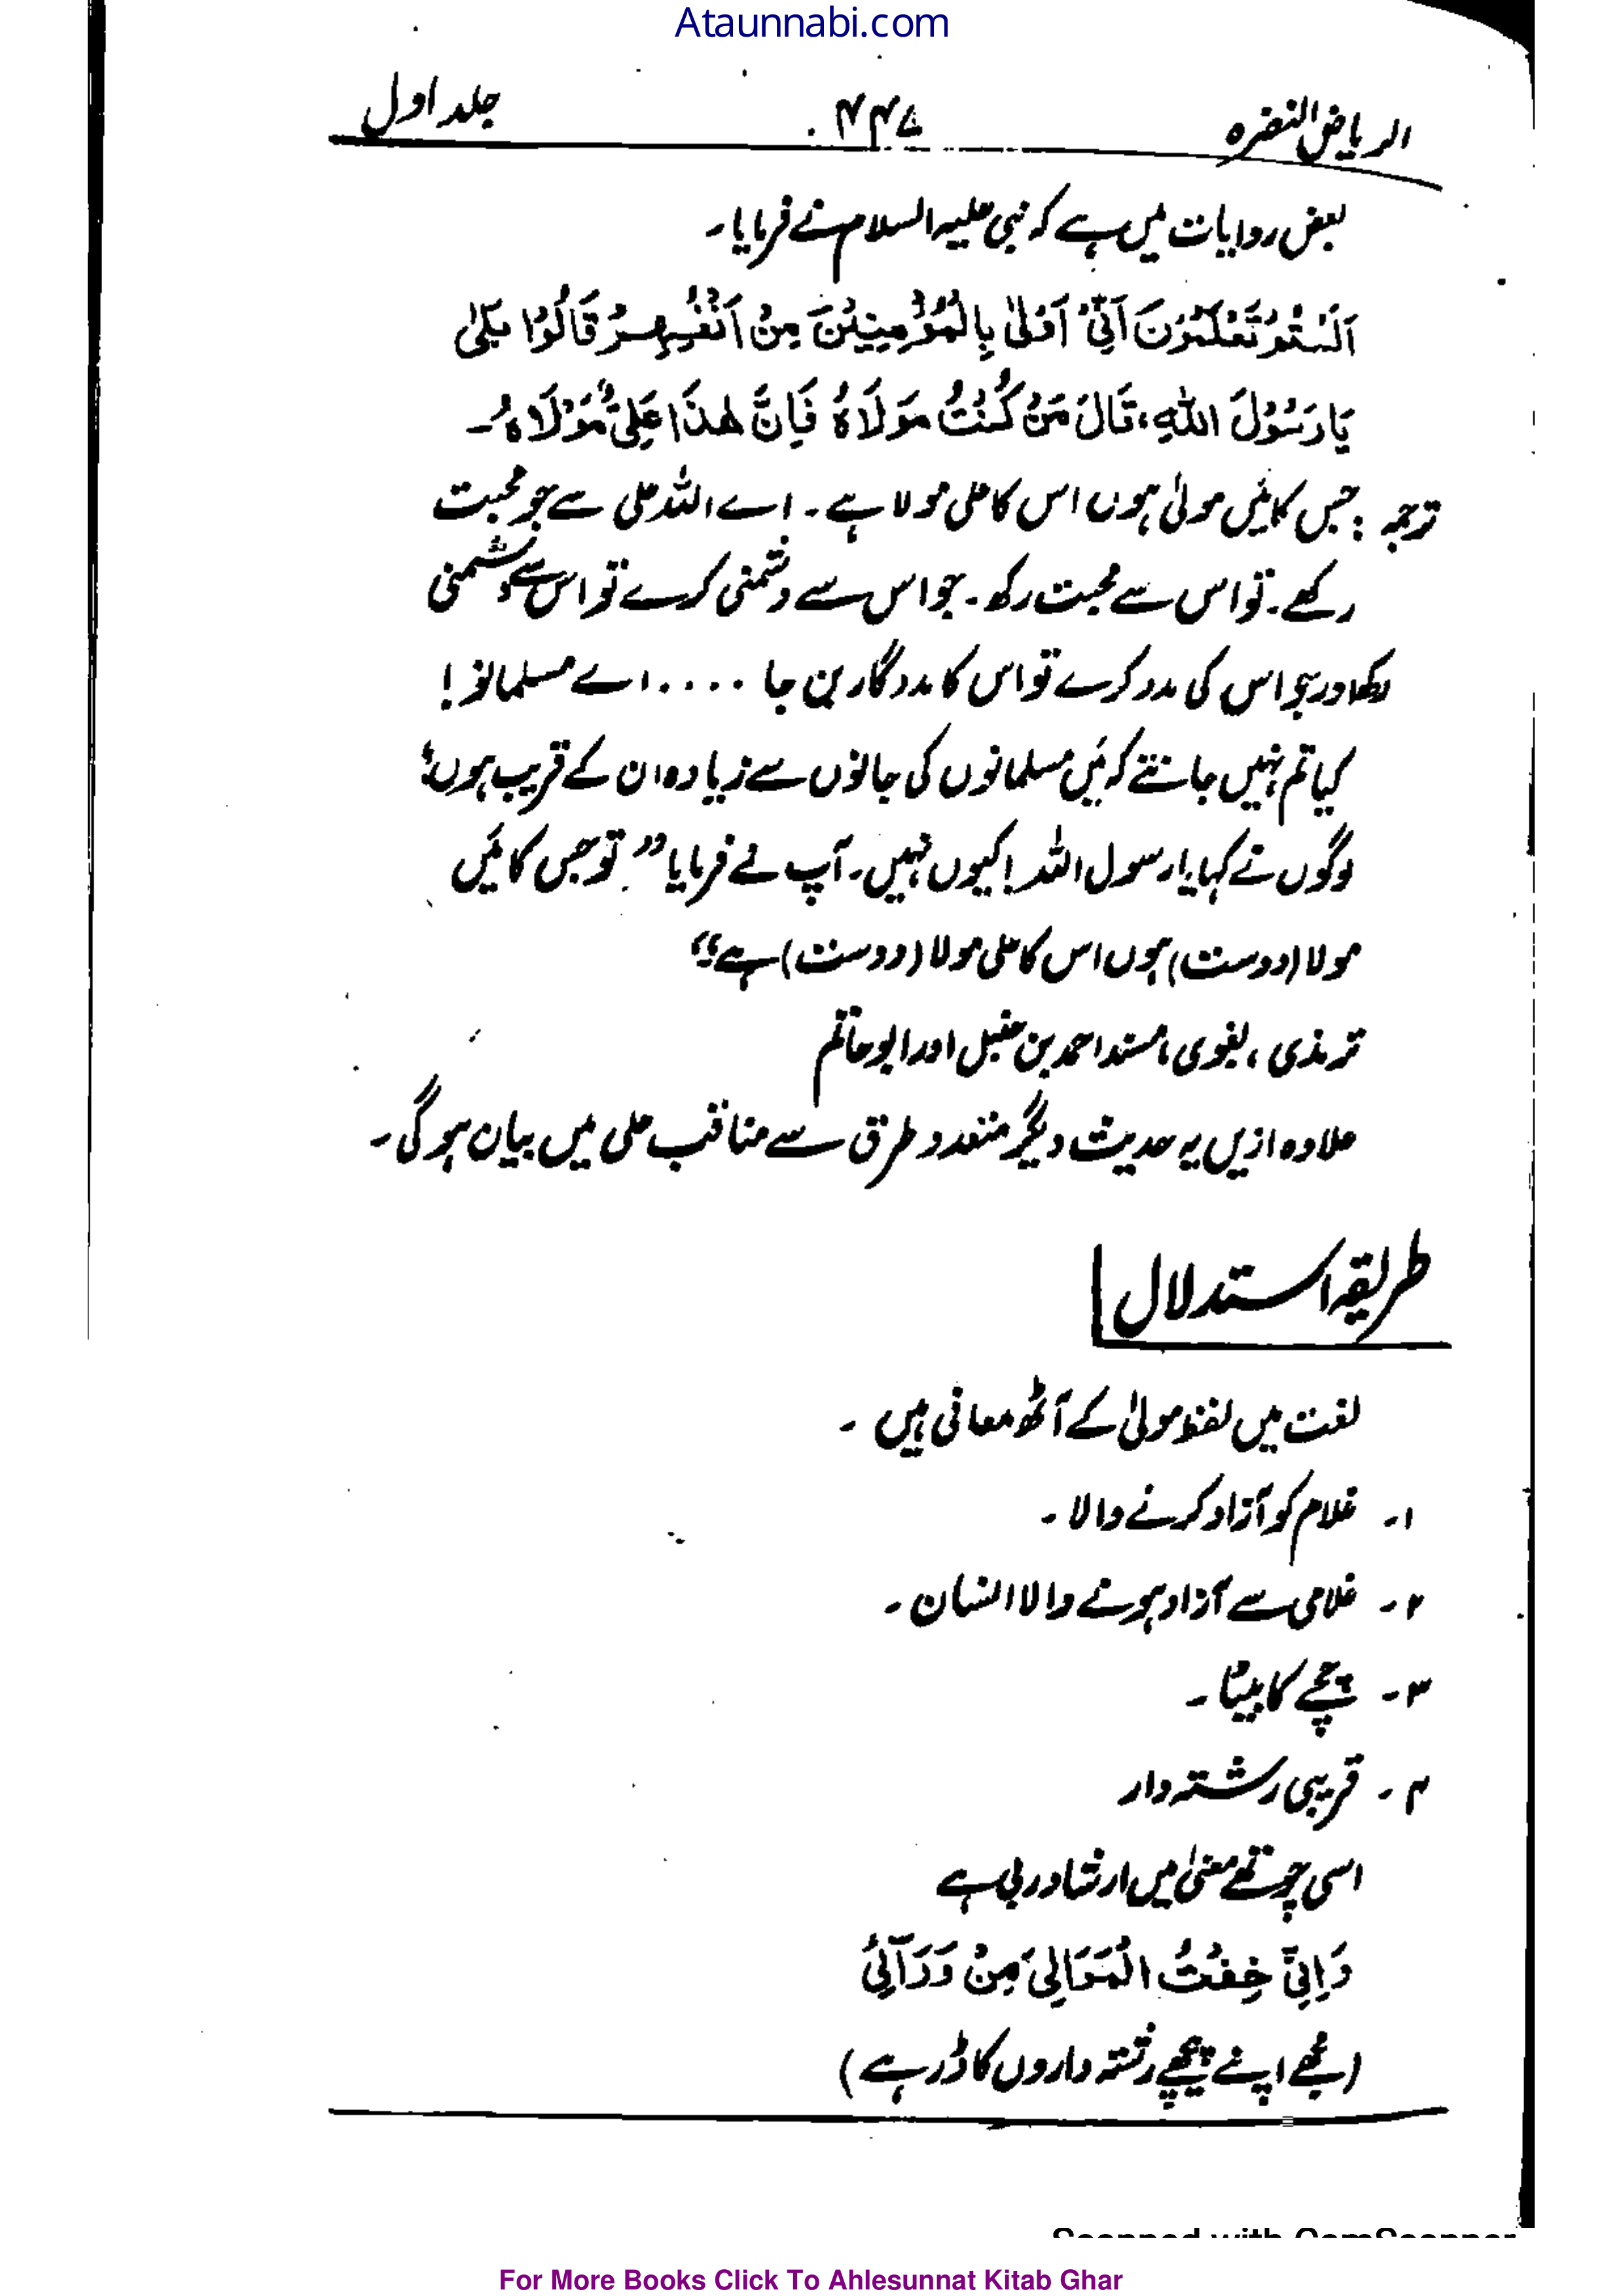 Ataunnabi.com
الریاض النضرہ ۴۴۷ جلد اول
بعض روایات میں ہے کہ نبی علیہ السلام نے فرمایا۔
اَلَسْتُمْ تَعْلَمُوْنَ اَنِّیْ اَوْلٰی بِالْمُؤْمِنِیْنَ مِنْ اَنْفُسِهِمْ قَالُوْا بَلٰی
یَا رَسُوْلَ اللهِ، قَالَ مَنْ كُنْتُ مَوْلَاهُ فَاِنَّ هٰذَا عَلِیٌّ مَوْلَاهُ۔
ترجمہ : جس کا میَں مولیٰ ہوں اس کا علی مولا ہے۔ اے اللہ علی سے جو محبت
رکھے۔ تو اس سے محبت رکھ۔ جو اس سے دشمنی کرے تو اس سے دشمنی
رکھ اور جو اس کی مدد کرے تو اس کا مددگار بن جا .... اے مسلمانو!
کیا تم نہیں جانتے کہ میَں مسلمانوں کی جانوں سے زیادہ ان کے قریب ہوں؟
لوگوں نے کہا یا رسول اللہ! کیوں نہیں۔ آپ نے فرمایا ”تو جس کا میَں
مولا (دوست) ہوں اس کا علی مولا (دوست) ہے“
ترمذی، بغوی، مسند احمد بن حنبل اور ابو حاتم
علاوہ ازیں یہ حدیث دیگر متعدد طرق سے مناقب علی میں بیان ہو گی۔
طریقہ استدلال
لغت میں لفظ مولیٰ کے آٹھ معانی ہیں۔
۱۔ غلام کو آزاد کرنے والا۔
۲۔ غلامی سے آزاد ہونے والا انسان۔
۳۔ چچے کا بیٹا۔
۴۔ قریبی رشتہ دار
اسی چوتھے معنیٰ میں ارشاد ربی ہے
وَاِنِّیْ خِفْتُ الْمَوَالِیَ مِنْ وَرَآئِیْ
(مجھے اپنے پیچھے رشتہ داروں کا ڈر ہے)
Scanned with CamScanner
For More Books Click To Ahlesunnat Kitab Ghar